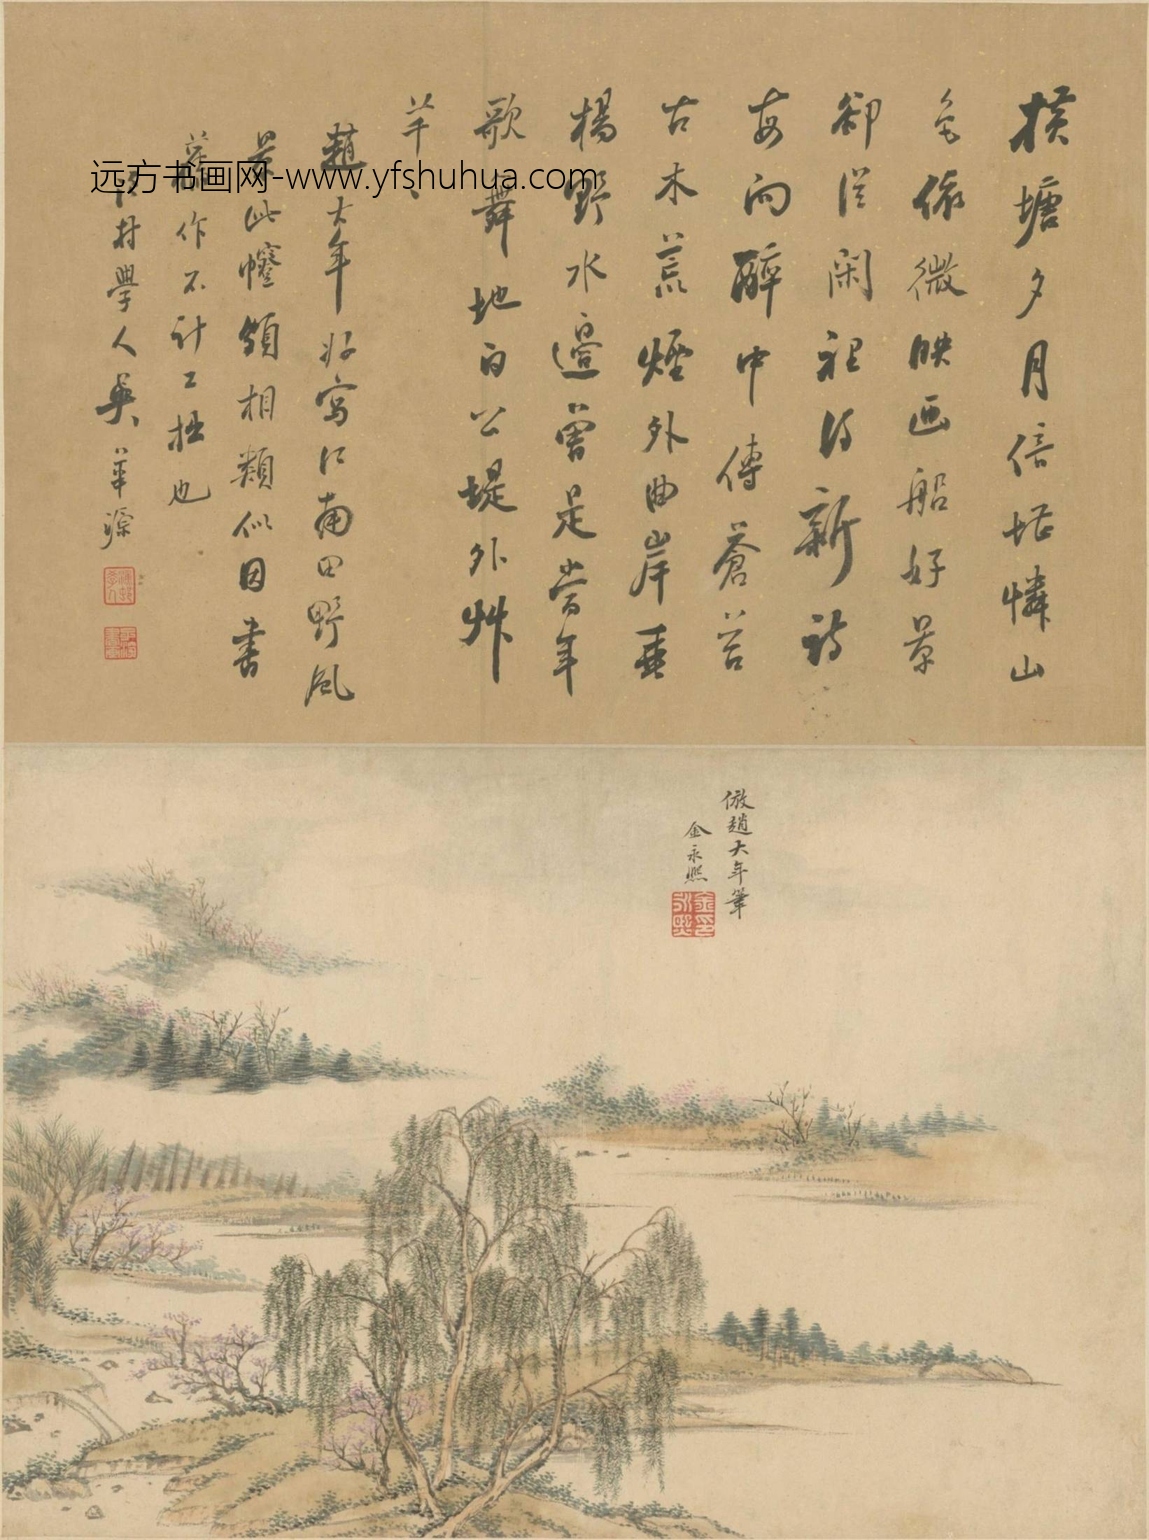 横塘夕月倍堪憐山
色依微映画船好景
却從閑裡得新詩
每向醉中傳蒼苔
古木荒煙外曲岸垂
楊野水邊曾是當年
歌舞地白公堤外艸
芊〻
趙大年好寫江南田野風
景此幀頗相類似因書
舊作不計工拙也
村學人吳華
远方书画网-www.yfshuhua.com
倣趙大年筆
金永熙
金永熙印